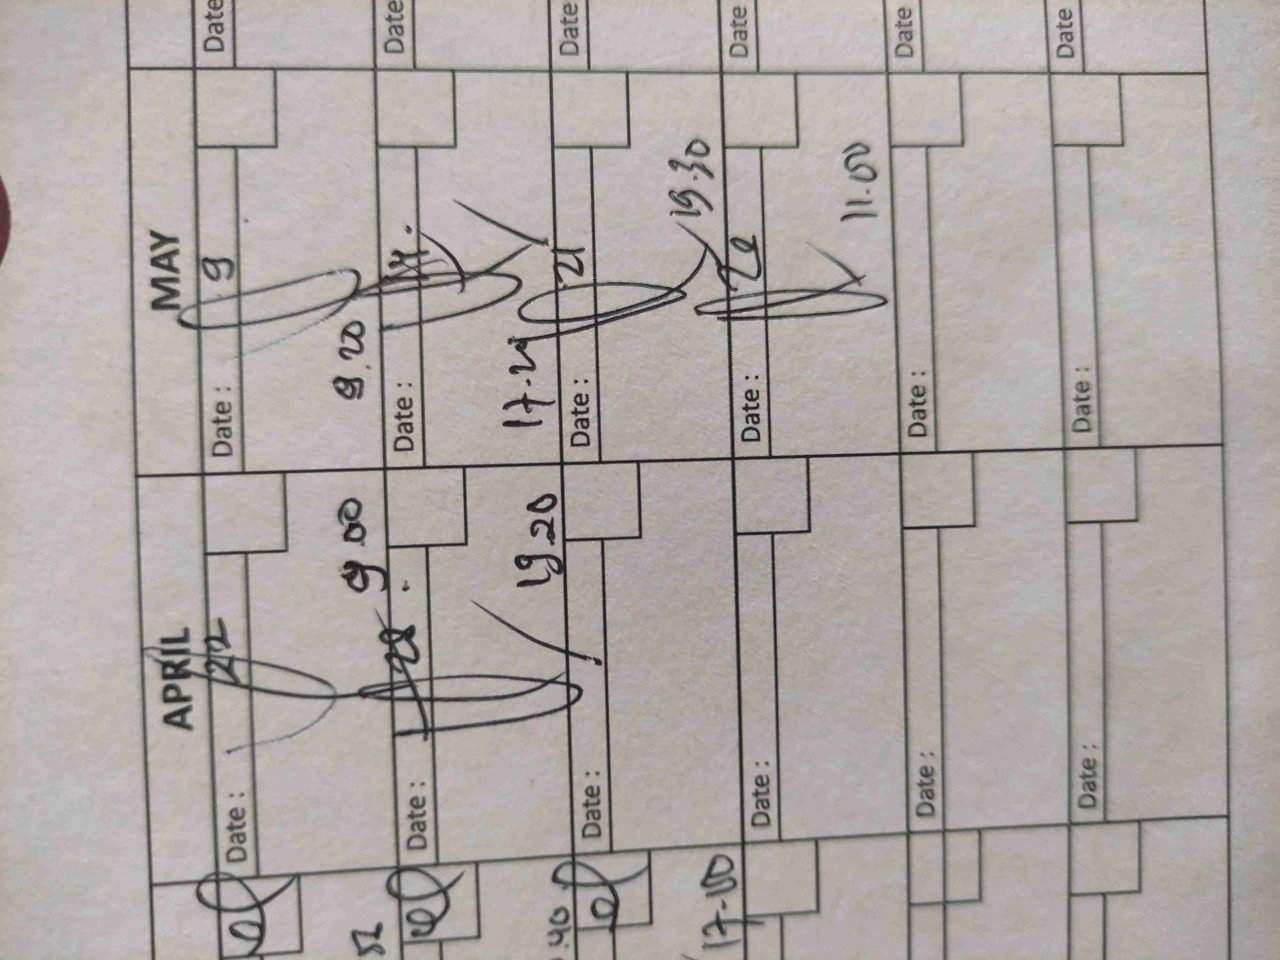 APRIL MAY
Date : 22 Date : 9 Date
9.00 9.20
Date : 28 Date : Date
19.20
Date : Date : 21 Date
17-00 19.30
Date : Date : Date
11.00
Date : Date : Date
Date : Date : Date